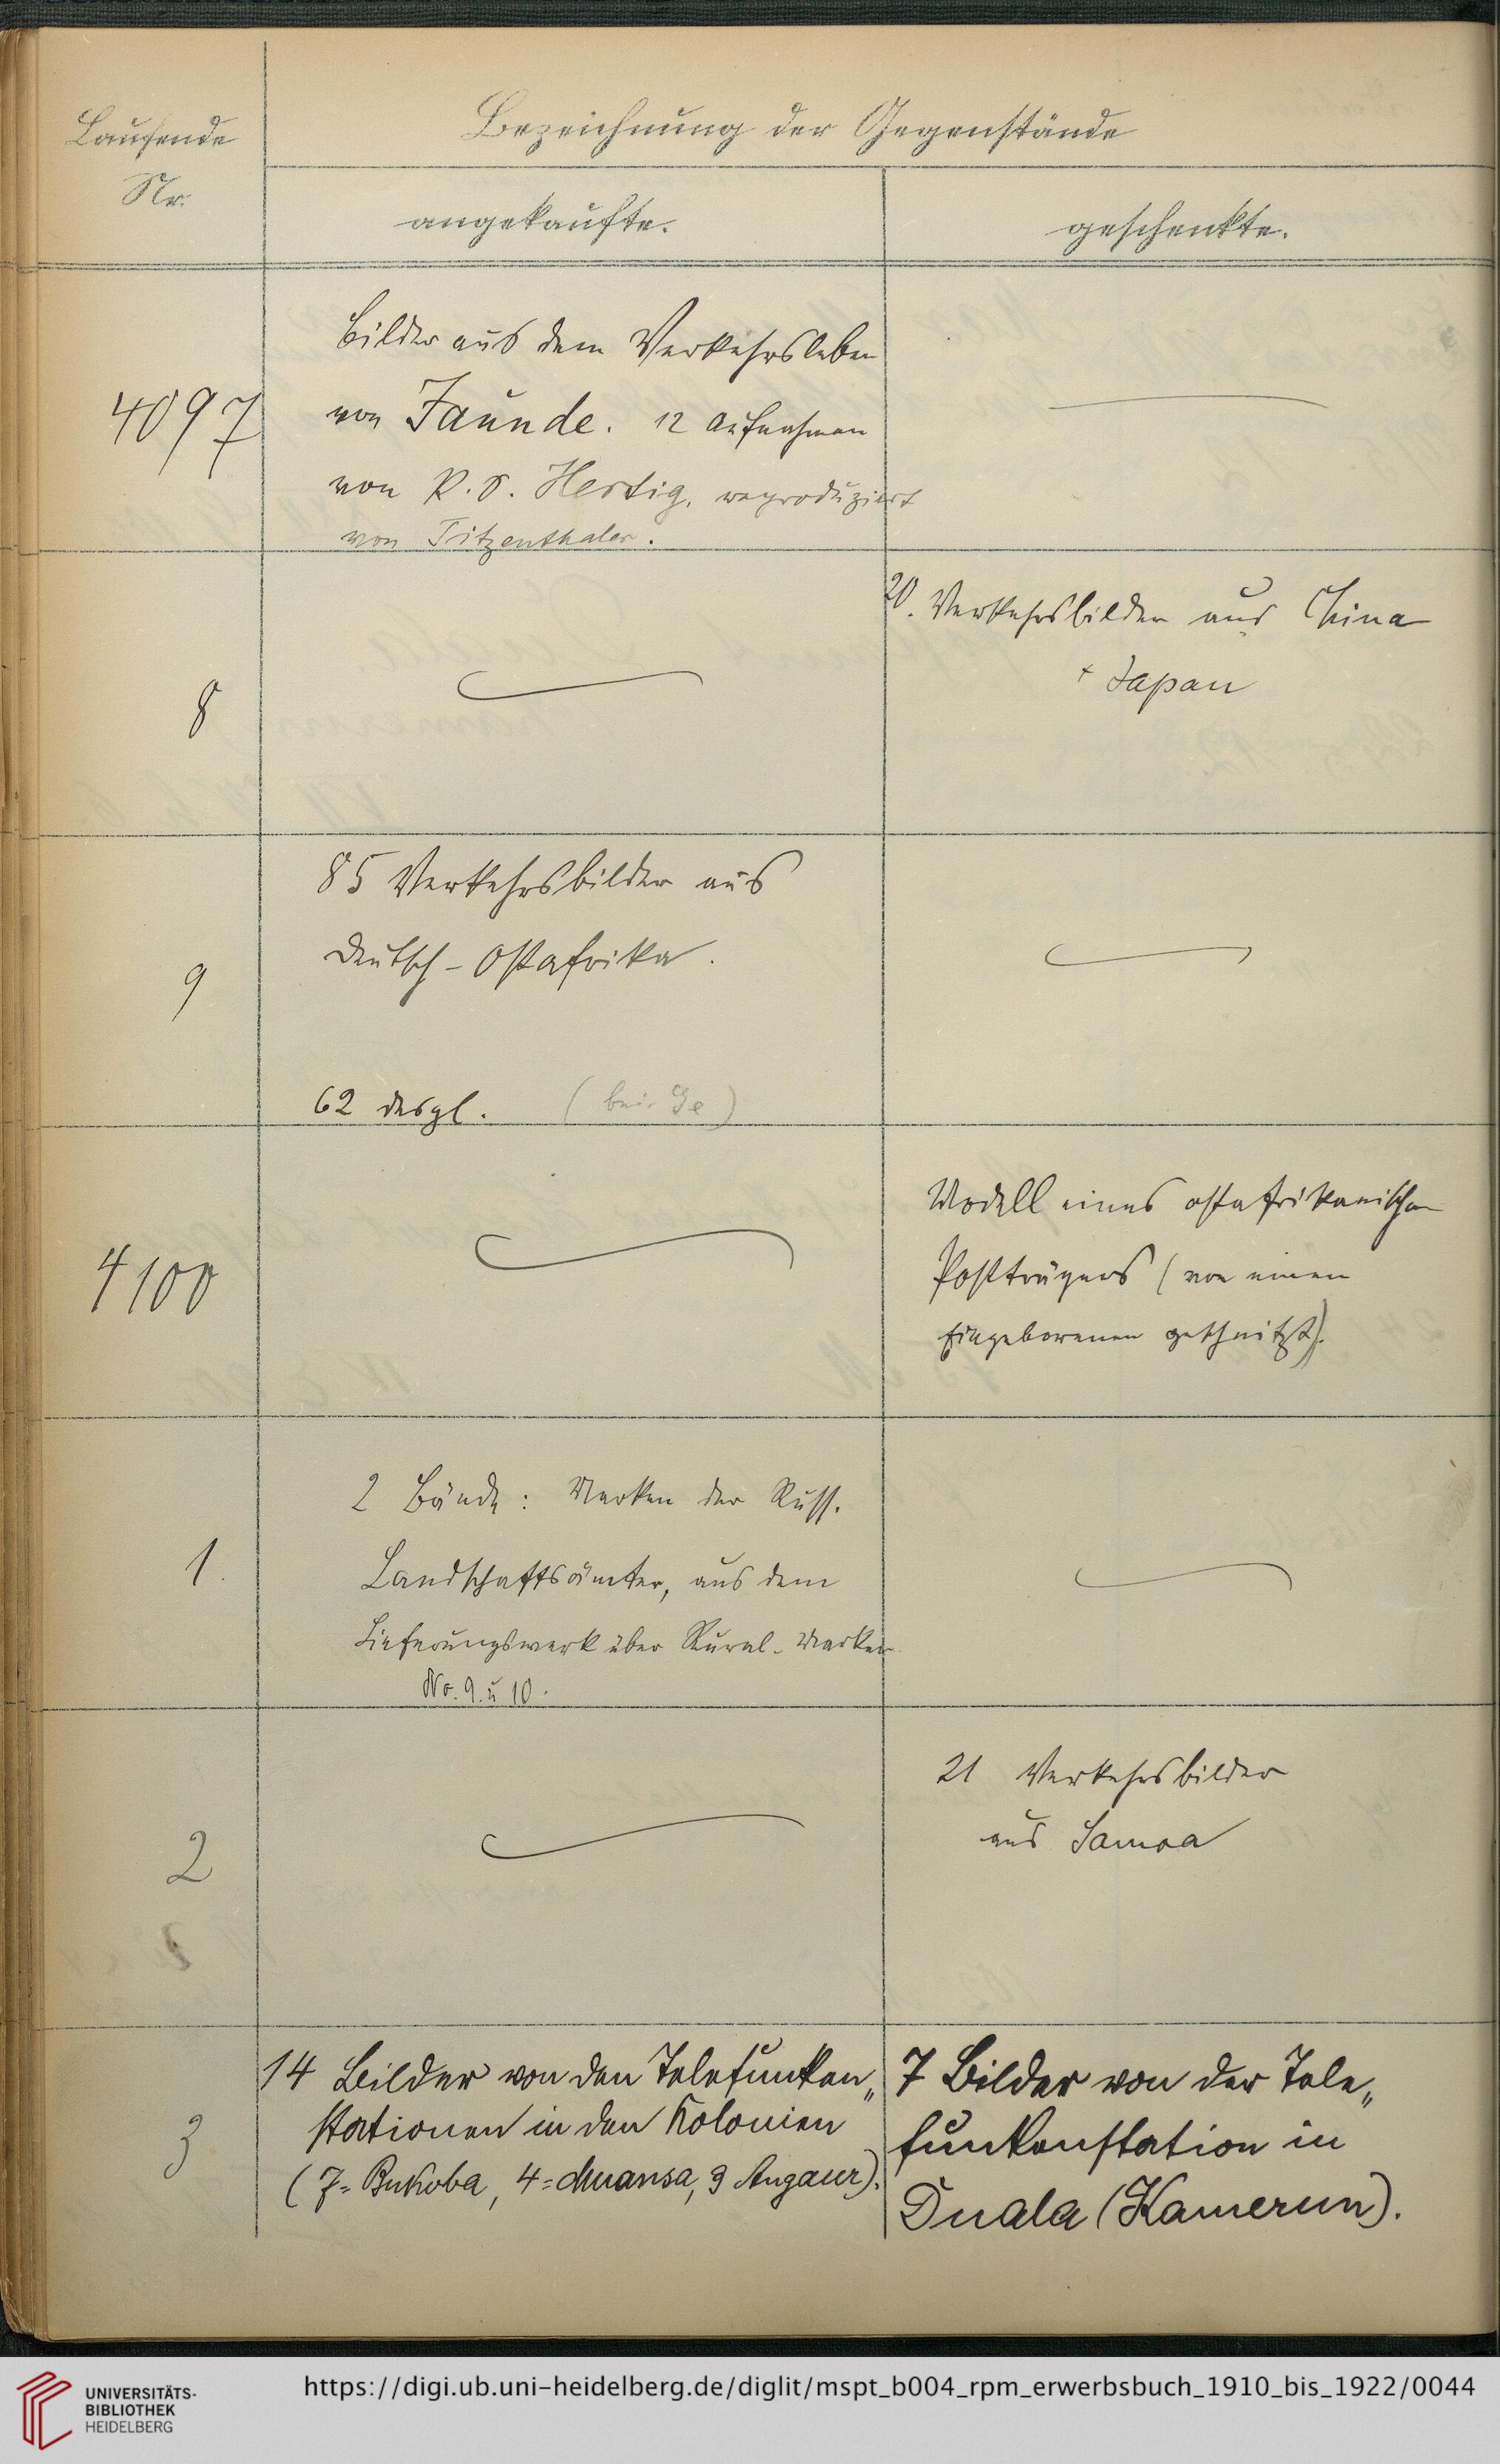 Laufende
Nr.
Bezeichnung der Gegenstände
angekaufte.
geschenkte.
4097
Bilder aus dem Verkehrsleben
von Jaunde. 12 Aufnahmen
von P. S. Hertig, reproduziert
von Titzenthaler.
8
20. Verkehrsbilder aus China
+ Japan
9
85 Verkehrsbilder aus
Deutsch-Ostafrika.
62 desgl. (bei Ge)
4100
Modell eines ostafrikanischen
Postträgers (von einem
Eingeborenen geschnitzt).
1.
2 Bände: Marken der Russ.
Landschaftsämter, aus dem
Lieferungswerk über Rural-Marken
No. 9. u 10.
2
21 Verkehrsbilder
aus Samoa
3
14 Bilder von den Telefunken„
stationen in den Kolonien
(7=Bukoba, 4=Muansa, 3 Angaur).
7 Bilder von der Tele„
funkenstation in
Duala (Kamerun).
UNIVERSITÄTS-
BIBLIOTHEK
HEIDELBERG
https://digi.ub.uni-heidelberg.de/diglit/mspt_b004_rpm_erwerbsbuch_1910_bis_1922/0044